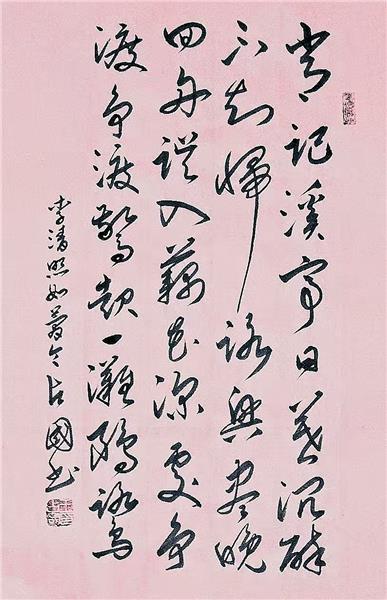 常記溪亭日暮沉醉
不知歸路興盡晚
回舟誤入藕花深處爭
渡爭渡驚起一灘鷗鷺
李清照如夢令占國書